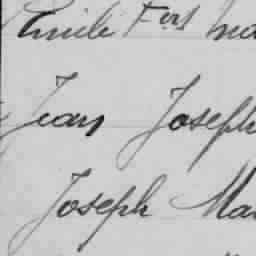 Emile Fois
Jean Joseph
Joseph Ma